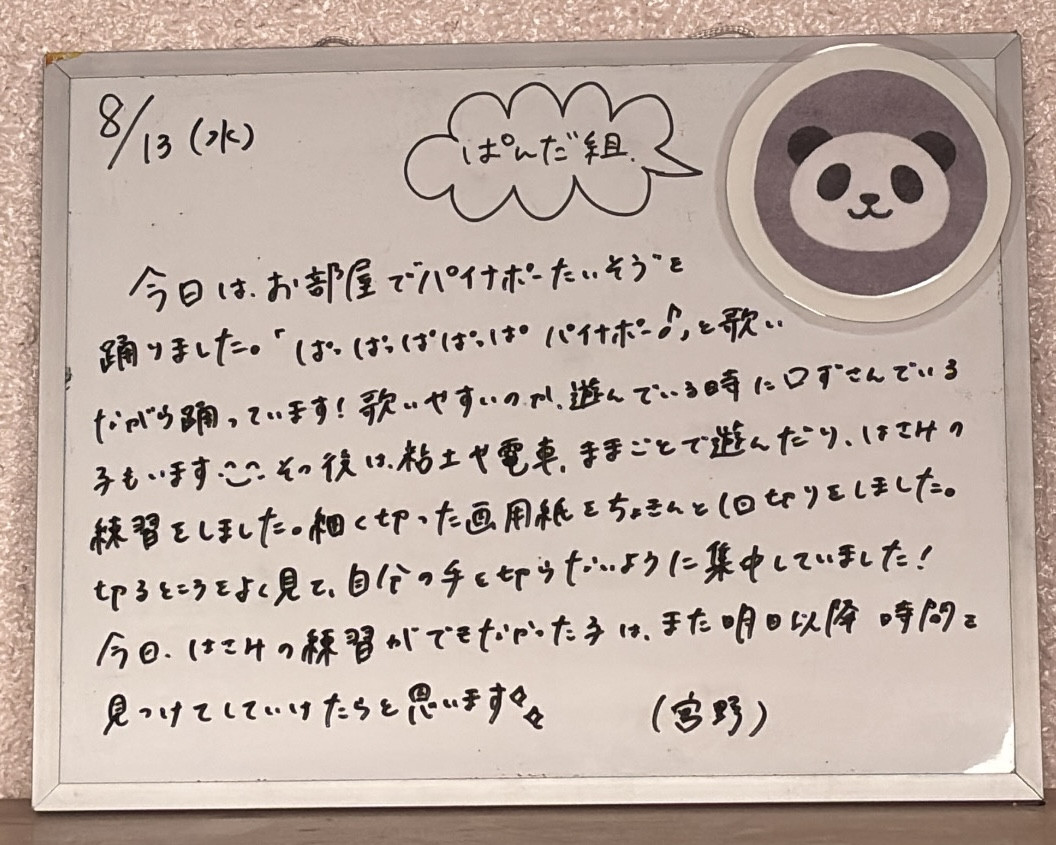 8/13(水)
ぱんだ組
今日は、お部屋でパイナポーたいそうを
踊りました。「ぱっぱっぱぱっぱ パイナポー♪」と歌い
ながら踊っています!歌いやすいのか、遊んでいる時に口ずさんでいる
子もいます。その後は、粘土や電車、ままごとで遊んだり、はさみの
練習をしました。細く切った画用紙をちょきんと1回切りをしました。
切るところをよく見て、自分の手を切らないように集中していました!
今日、はさみの練習ができなかった子は、また明日以降時間を
見つけてしていけたらと思います
(宮野)